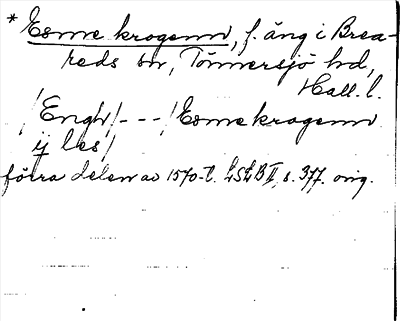 * Esme krogenn, f. äng i Brea-
reds sn, Tönnersjö hd,
Hall. l.
/Engh/ - - - /Esmekrogenn
ij les/
förra delen av 1570-t. LSLB II, s. 377. orig.